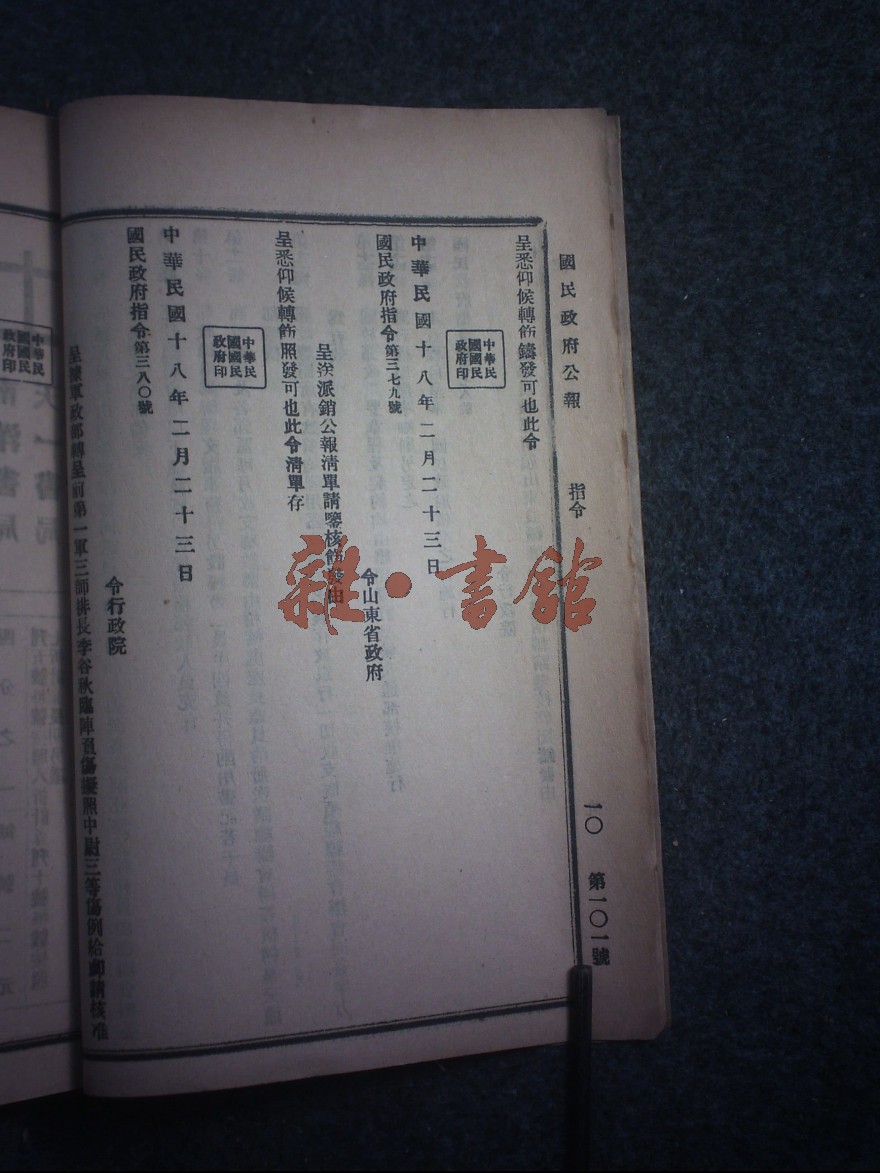 國民政府公報 指令 一〇 第一〇一號
呈悉仰候轉飭鑄發可也此令
中華民
國國民
政府印
中華民國十八年二月二十三日
國民政府指令第三七九號
令山東省政府
呈送派銷公報清單請鑒核飭發由
呈悉仰候轉飭照發可也此令清單存
中華民
國國民
政府印
中華民國十八年二月二十三日
國民政府指令第三八〇號
令行政院
呈據軍政部轉呈前第一軍三師排長李谷秋臨陣負傷擬照中尉三等傷例給卹請核准
中華民
國國民
政府印
雜·書館